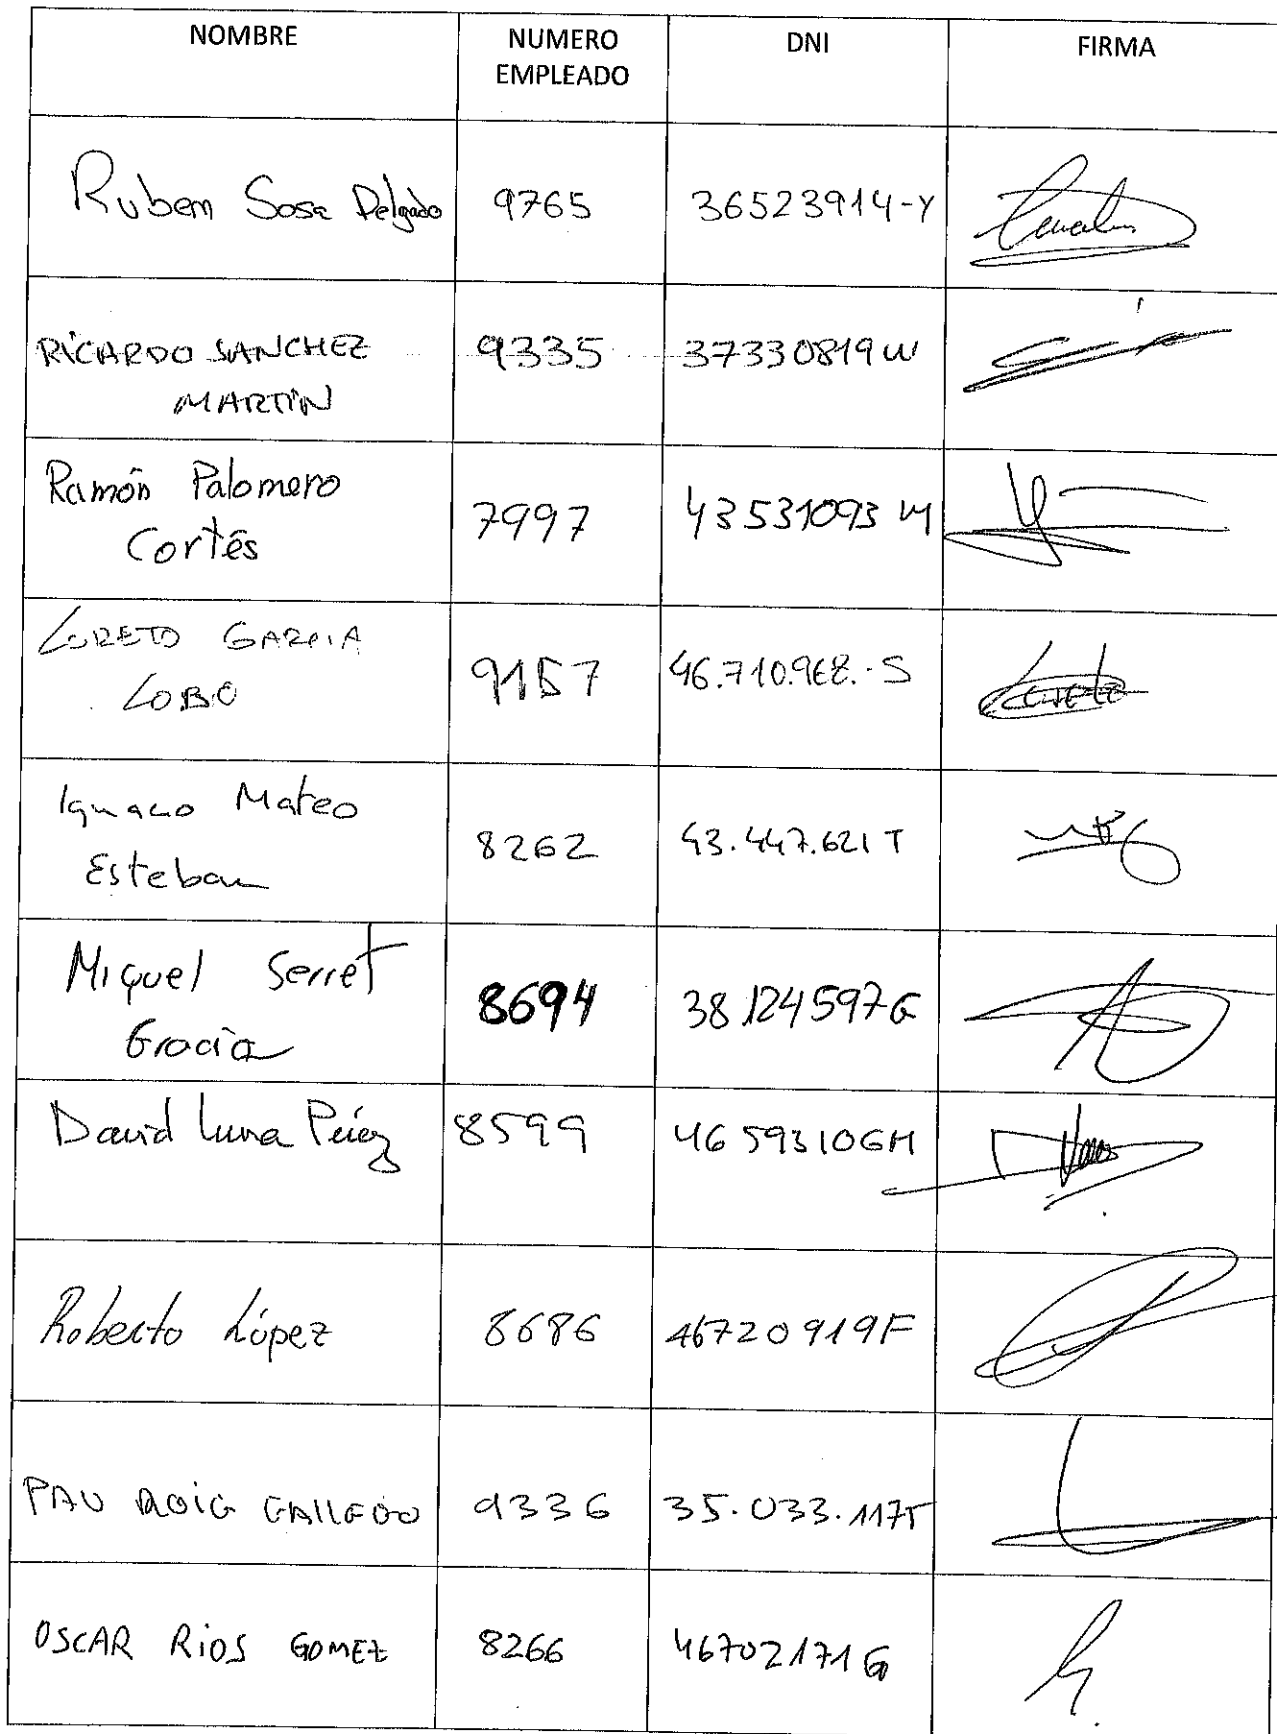 NOMBRE NUMERO EMPLEADO DNI FIRMA
Ruben Sosa Delgado 9765 36523914-Y
RICARDO SANCHEZ 9335 37330819W
MARTÍN
Ramón Palomero 7997 43531093 M
Cortés
LORETO GARCIA 9157 46.710.968.-S
LOBO
Ignacio Mateo 8262 43.447.621 T
Esteban
Miguel Serret 8694 38.124597G
Gracia
David Luna Pérez 8599 46593106H
Roberto López 8686 46720919F
PAU ROIG GALLEGO 9336 35.033.117T
OSCAR RIOS GOMEZ 8266 46702171G